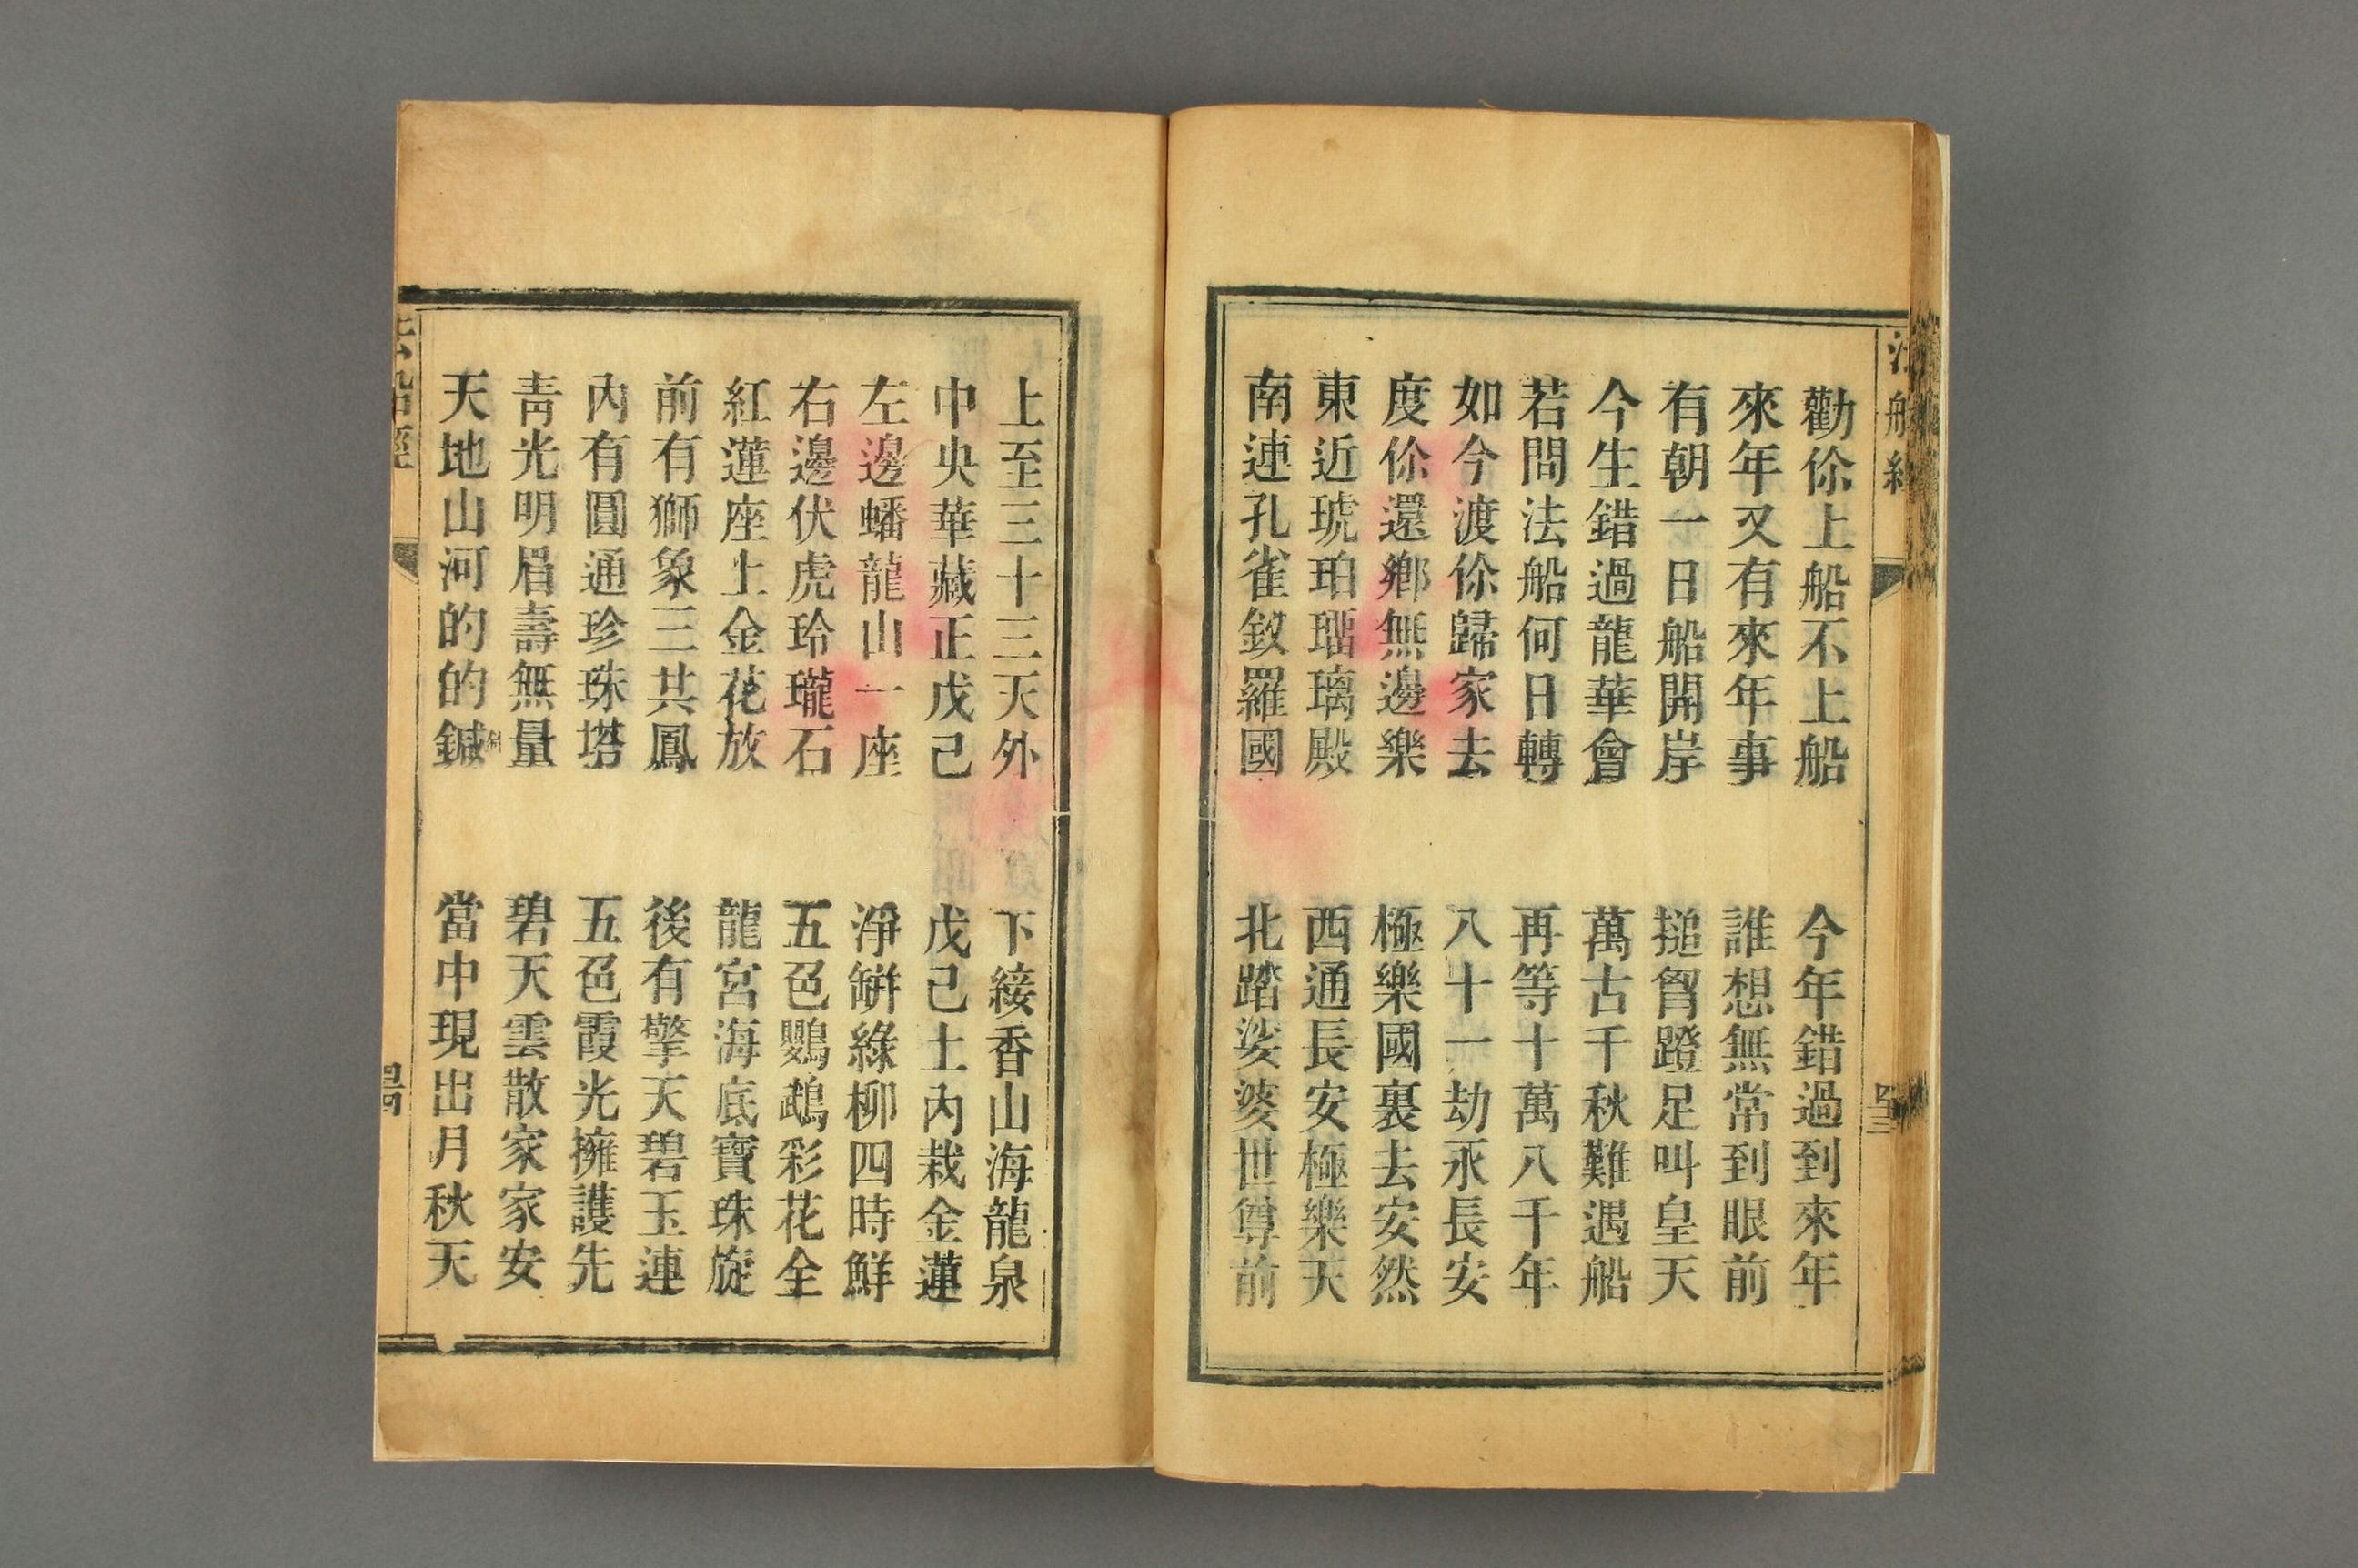 法船經
勸你上船不上船 今年錯過到來年
來年又有來年事 誰想無常到眼前
有朝一日船開岸 搥胷蹬足叫皇天
今生錯過龍華會 萬古千秋難遇船
若問法船何日轉 再等十萬八千年
如今渡你歸家去 八十一劫永長安
度你還鄉無邊樂 極樂國裏去安然
東近琥珀瑠璃殿 西通長安極樂天
南連孔雀釹羅國 北踏娑婆世尊前
上至三十三天外 下綾香山海龍泉
中央華藏正戊己 戊己土內栽金蓮
左邊蟠龍山一座 淨缾綠柳四時鮮
右邊伏虎玲瓏石 五色鸚鵡彩花全
紅蓮座上金花放 龍宮海底寶珠旋
前有獅象三共鳳 後有擎天碧玉連
內有圓通珍珠塔 五色霞光擁護先
靑光明眉壽無量 碧天雲散家家安
天地山河的的鍼 當中現出月秋天
法船經